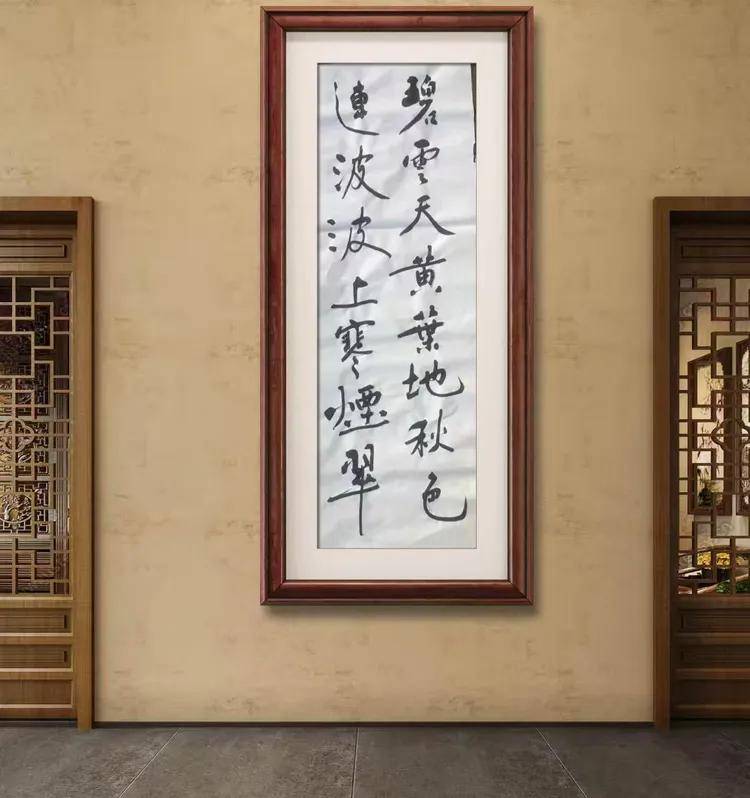 碧雲天黄葉地秋色
連波波上寒煙翠